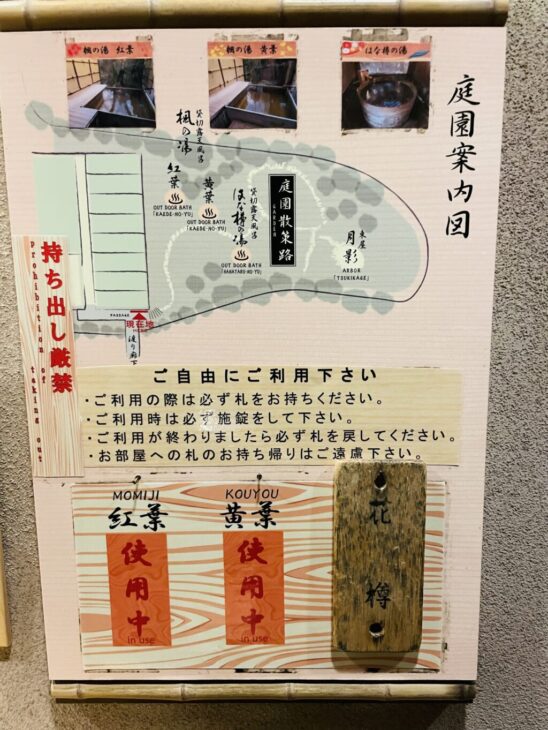 楓の湯 紅葉
楓の湯 黄葉
はな樽の湯
庭園案内図
貸切露天風呂
楓の湯
紅葉
OUT DOOR BATH
「KAEDE-NO-YU」
黄葉
OUT DOOR BATH
「KAEDE-NO-YU」
貸切露天風呂
はな樽の湯
OUT DOOR BATH
「HANATARU-NO-YU」
庭園散策路
GARDEN
東屋
月影
ARBOR
「TSUKIKAGE」
PASSAGE
現在地
渡り廊下
持ち出し厳禁
Prohibition of taking out
ご自由にご利用下さい
・ご利用の際は必ず札をお持ちください。
・ご利用時は必ず施錠をして下さい。
・ご利用が終わりましたら必ず札を戻してください。
・お部屋への札のお持ち帰りはご遠慮下さい。
MOMIJI
紅葉
使用中
in use
KOUYOU
黄葉
使用中
in use
花樽